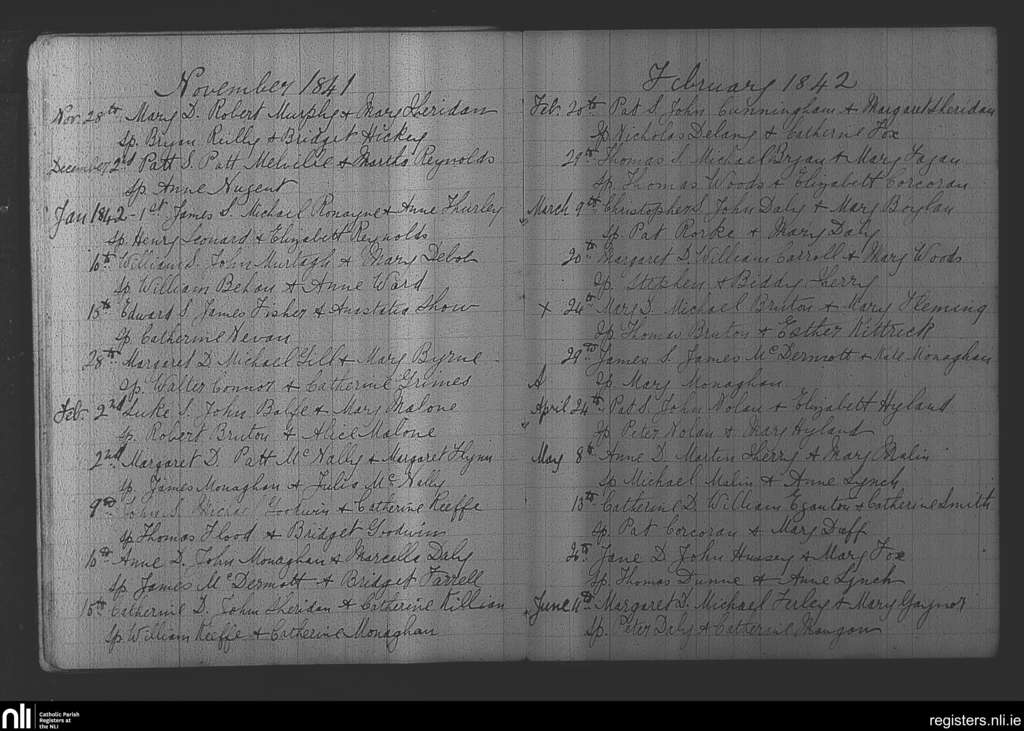 November 1841
Nov. 28th Mary D. Robert Murphy & Mary Sheridan
Sp. Bryan Reilly & Bridget Hickey
December 2nd Patt S. Patt Melville & Martha Reynolds
Sp. Anne Nugent
Jan 1842 - 1st James S. Michael Ronayne & Anne Thurley
Sp. Henry Leonard & Elizabeth Reynolds
10th William S. John Murtagh & Mary
Sp. William Behan & Anne Ward
15th Edward S. James Fisher & Anastatia Show
Sp. Catherine Nevan
28th Margaret D. Michael Gill & Mary Byrne
Sp. Walter Connor & Catherine Grimes
Feb. 2nd Luke S. John Balfe & Mary Malone
Sp. Robert Bruton & Alice Malone
2nd Margaret D. Patt McNally & Margaret Flynn
Sp. James Monaghan & Julia McNally
9th John S. Goodwin & Catherine Keeffe
Sp Thomas Flood & Bridget Goodwin
10th Anne D. John Monaghan & Marcella Daly
Sp. James McDermott & Bridget Farrell
15th Catherine D. John Sheridan & Catherine Killian
Sp. William Keeffe & Catherine Monaghan
February 1842
Feb. 20th Pat S. John Cunningham & Margaret Sheridan
Sp. Nicholas Delany & Catherine Fox
29th Thomas S. Michael Bryan & Mary Fagan
Sp. Thomas Woods & Elizabeth Corcoran
" March 9th Christopher S. John Daly & Mary Boylan
Sp. Pat Rorke & Mary Daly
20th Margaret D. William Carroll & Mary Woods
Sp. Stephen & Biddy Sherry
x 24th Mary D. Michael Britton & Mary Fleming
Sp. Thomas Bruton & Esther Kittrick
29th James S. James McDermott & Kate Monaghan
A Sp. Mary Monaghan
April 24th Pat S. John Nolan & Elizabeth Hyland
" Sp. Peter Nolan & Mary Hyland
May 8th Anne D. Martin Sherry & Mary Malin
Sp Michael Malin & Anne Lynch
13th Catherine D. William Eganton & Catherine Smith
Sp. Pat Corcoran & Mary Duff
26th Jane D. John Hussey & Mary Fox
Sp. Thomas Dunne & Anne Lynch
" June 11th Margaret D. Michael Ferley & Mary Gaynor
Sp. Peter Daly & Catherine Mangan
nli
Catholic Parish
Registers at
the NLI
registers.nli.ie